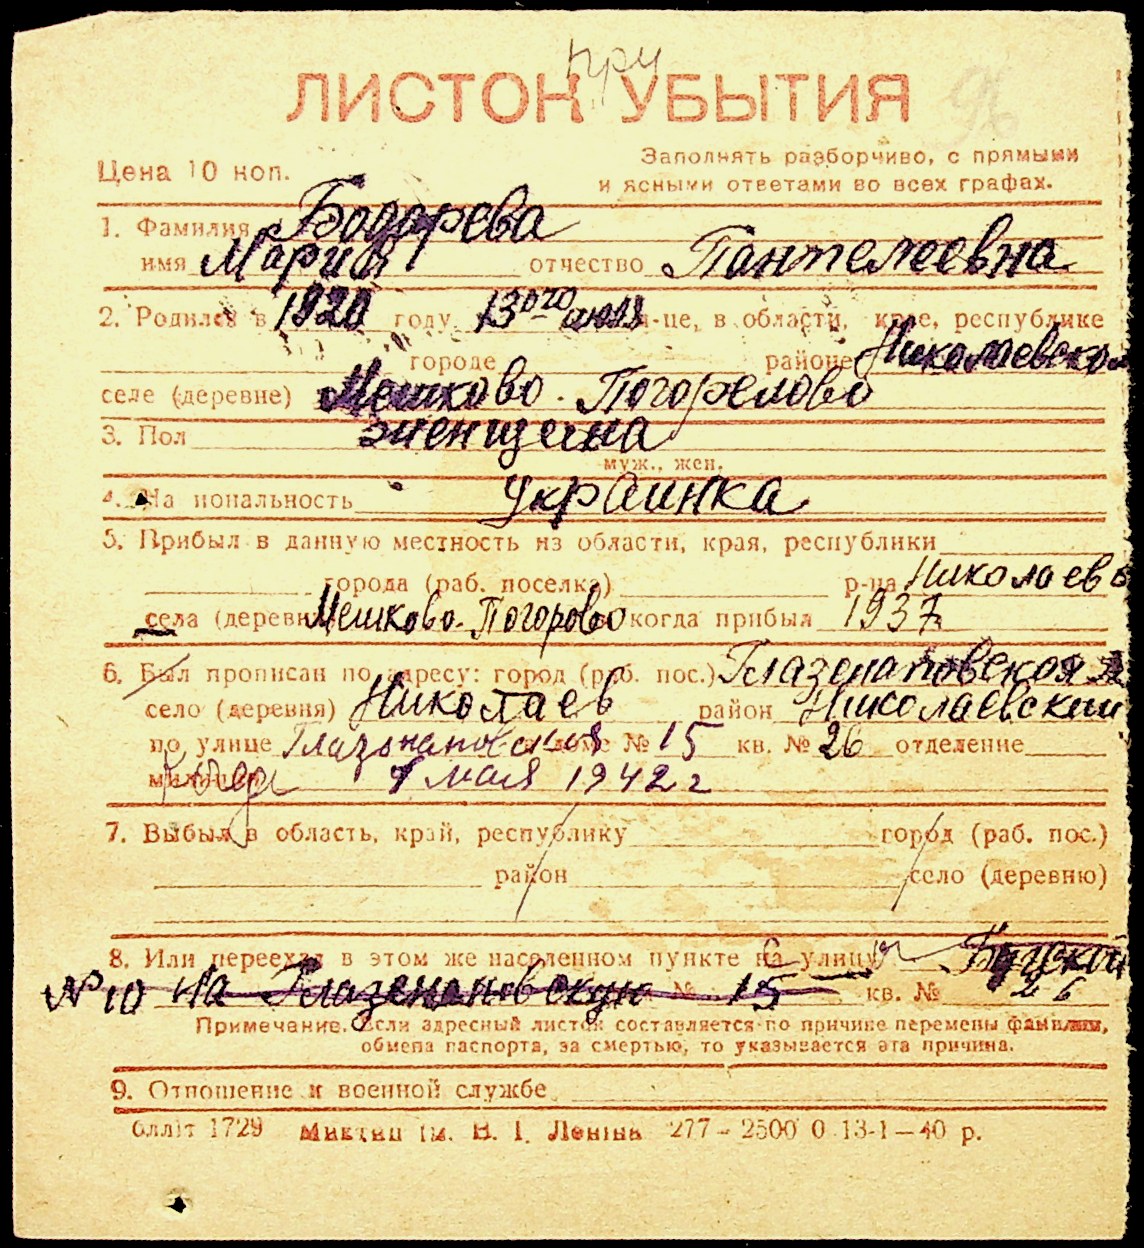 при
ЛИСТОК УБЫТИЯ 96
Цена 10 коп. Заполнять разборчиво, с прямыми
и ясными ответами во всех графах.
1. Фамилия Бодарева
имя Мария отчество Пантелеевна
2. Родился в 1920 году 13ого июля м-це, в области, крае, республике
городе районе Николаевском
селе (деревне) Мешково-Погорелово
3. Пол женщина
муж., жен.
4. Национальность украинка
5. Прибыл в данную местность из области, края, республики
города (раб. поселка) р-на Николаев
села (деревни) Мешково-Погорово когда прибыл 1937
6. Был прописан по адресу: город (раб. пос.) Глазенаповская
село (деревня) Николаев район Николаевский
по улице Глазонаповская доме № 15 кв. № 26 отделение
милиции 1 мая 1942 г
7. Выбыл в область, край, республику город (раб. пос.)
район село (деревню)
8. Или переехал в этом же населенном пункте на улицу
№ 10 На Глазенаповскую № 15 кв. № 26
Примечание. Если адресный листок составляется по причине перемены фамилии,
обмена паспорта, за смертью, то указывается эта причина.
9. Отношение к военной службе
1729 ім. В. І. Леніна 277 – 2500 0 13-1 – 40 р.